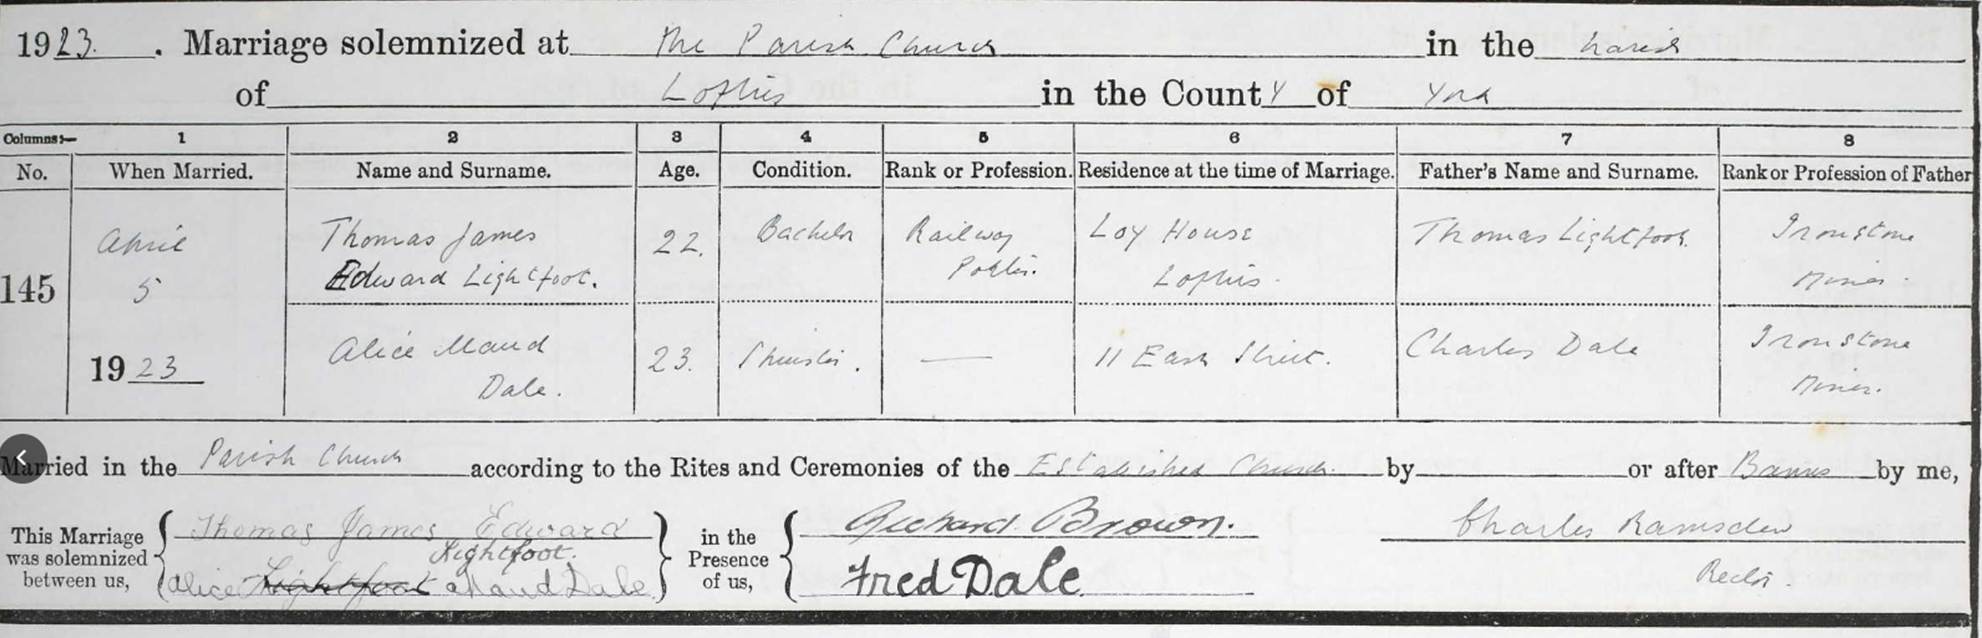 1923. Marriage solemnized at The Parish Church in the Parish
of Loftus in the County of York
Columns:— 1 2 3 4 5 6 7 8
No. When Married. Name and Surname. Age. Condition. Rank or Profession. Residence at the time of Marriage. Father's Name and Surname. Rank or Profession of Father
145
April
5
1923
Thomas James
Edward Lightfoot.
22.
Bachelor
Railway
Porter.
Loy House
Loftus.
Thomas Lightfoot.
Ironstone
Miner.
Alice Maud
Dale.
23.
Spinster.
—
11 East Street.
Charles Dale
Ironstone
Miner.
Married in the Parish Church according to the Rites and Ceremonies of the Established Church by or after Banns by me,
This Marriage
was solemnized
between us,
Thomas James Edward
Lightfoot.
Alice Lightfoot Maud Dale
in the
Presence
of us,
Richard Brown.
Fred Dale
Charles Ramsden
Rector.